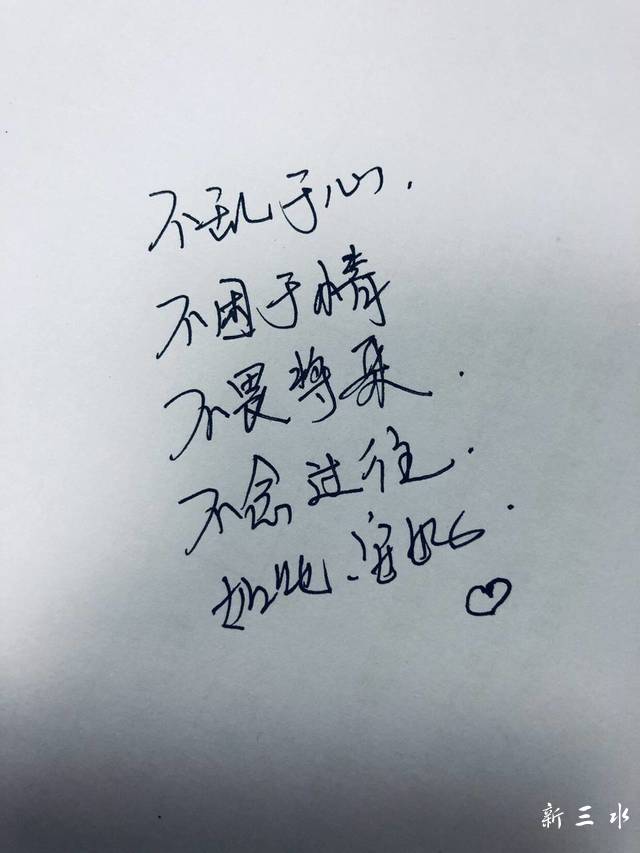 不乱于心.
不困于情
不畏将来.
不念过往.
如此、安好.
新三水